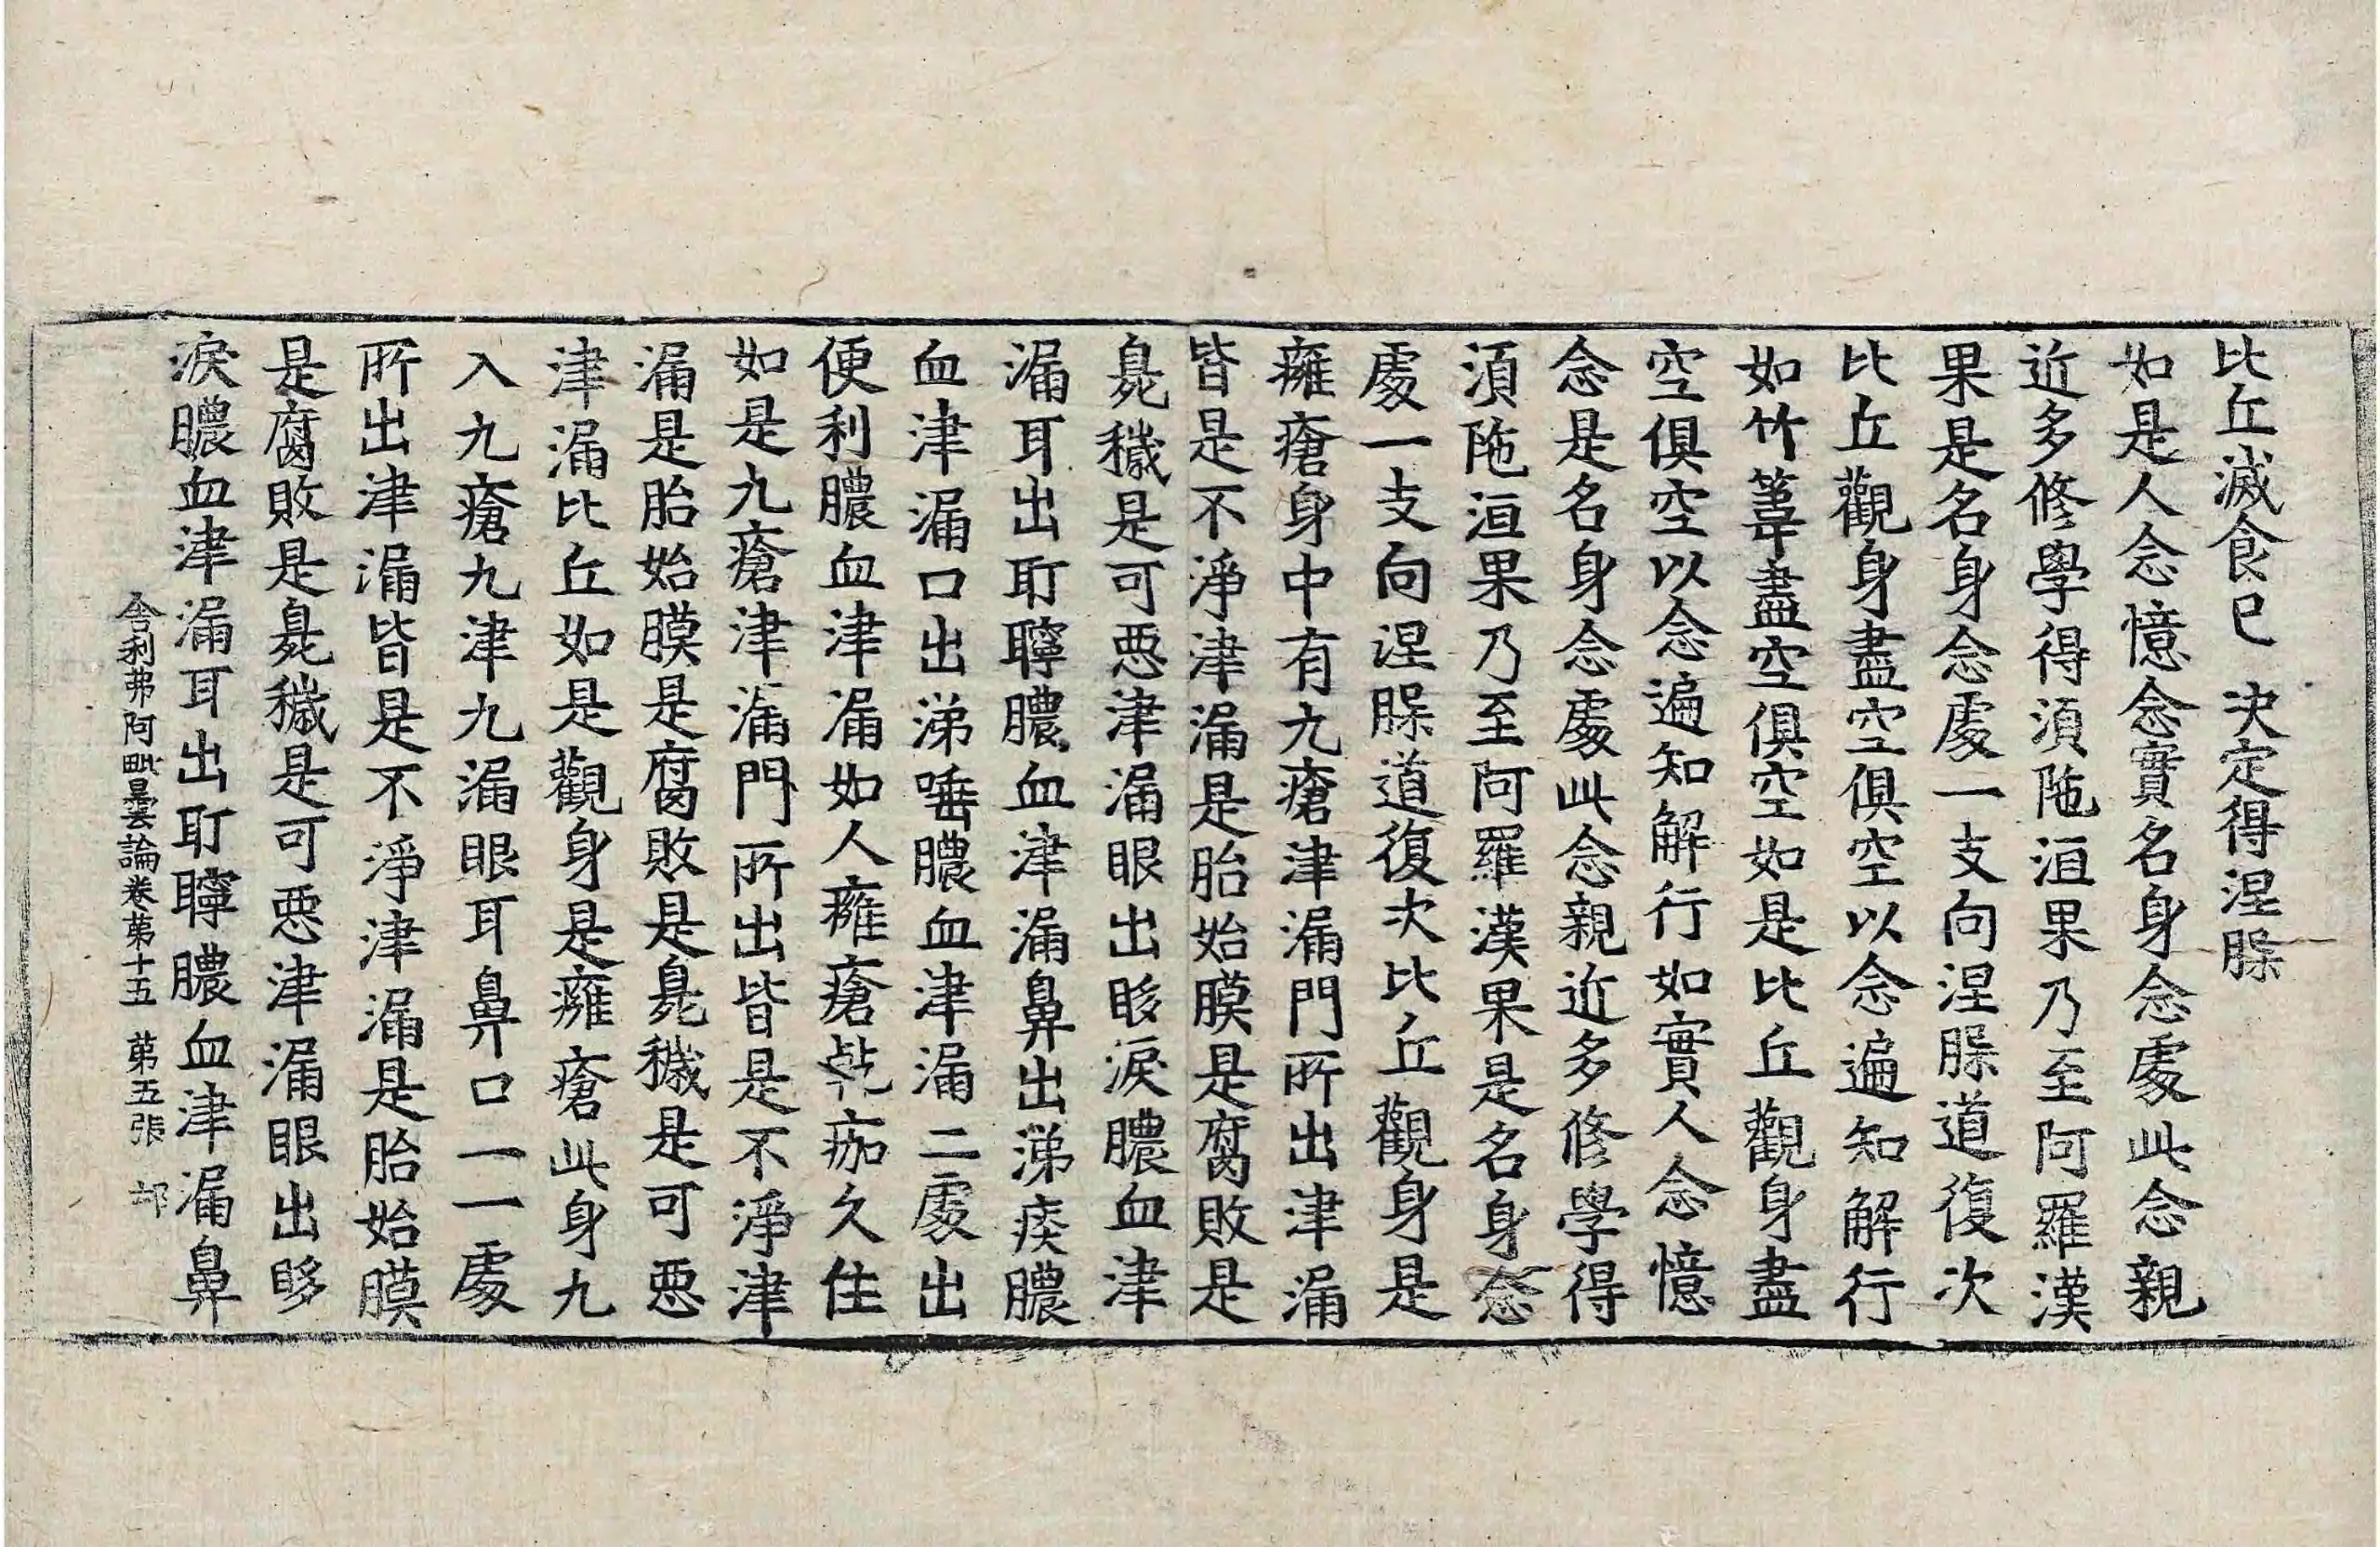 比丘滅食已 决定得涅脲
如是人念憶念實名身念處此念親
近多修學得湏陁洹果乃至阿羅漢
果是名身念處一支向涅脲道復次
比丘觀身盡空俱空以念遍知解行
如竹葦盡空俱空如是比丘觀身盡
空俱空以念遍知解行如實人念憶
念是名身念處此念親近多修學得
湏陁洹果乃至阿羅漢果是名身念
處一支向涅脲道復次比丘觀身是
癰瘡身中有九瘡津漏門所出津漏
皆是不淨津漏是胎始膜是腐敗是
臰穢是可惡津漏眼出眵淚膿血津
漏耳出耵聹膿血津漏鼻出涕痰膿
血津漏口出涕唾膿血津漏二處出
便利膿血津漏如人癰瘡乾痂久住
如是九瘡津漏門所出皆是不淨津
漏是胎始膜是腐敗是臰穢是可惡
津漏比丘如是觀身是癰瘡此身九
入九瘡九津九漏眼耳鼻口一一處
所出津漏皆是不淨津漏是胎始膜
是腐敗是臰穢是可惡津漏眼出眵
淚膿血津漏耳出耵聹膿血津漏鼻
舍利弗阿毗曇論卷苐十五 苐五張 邙